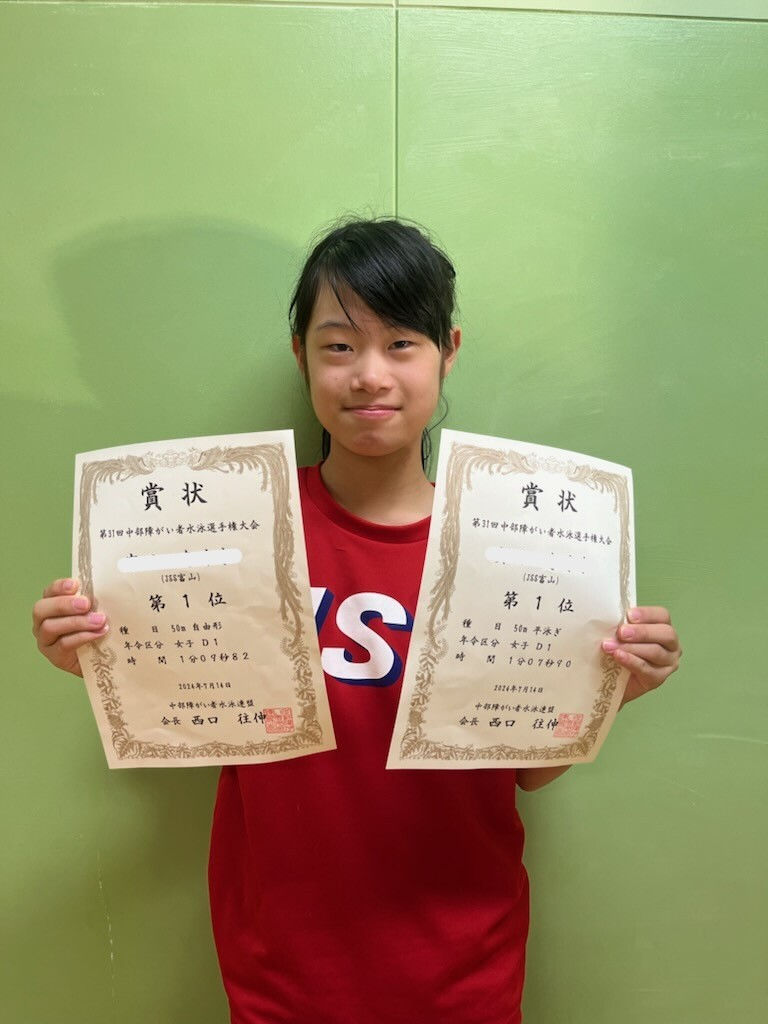 賞状
第31回中部障がい者水泳選手権大会
(JSS富山)
第1位
種目 50m 自由形
年令区分 女子 D1
時間 1分07秒82
2024年7月14日
中部障がい者水泳連盟
会長 西口 往伸
賞状
第31回中部障がい者水泳選手権大会
(JSS富山)
第1位
種目 50m 平泳ぎ
年令区分 女子 D1
時間 1分07秒90
2024年7月14日
中部障がい者水泳連盟
会長 西口 往伸